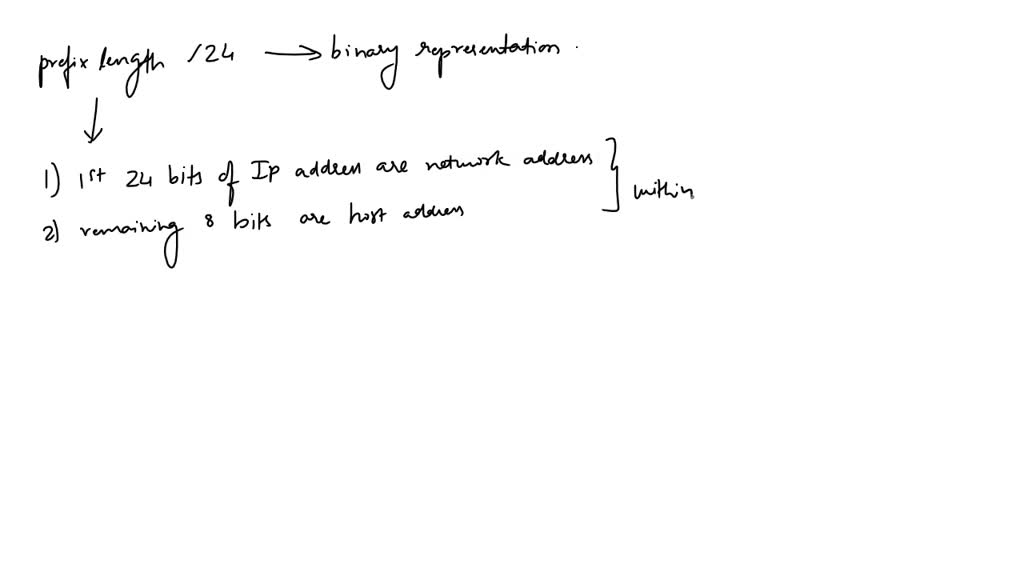 prefix length /24 → binary representation.
↓
1) 1st 24 bits of Ip address are network address
within
2) remaining 8 bits are host address